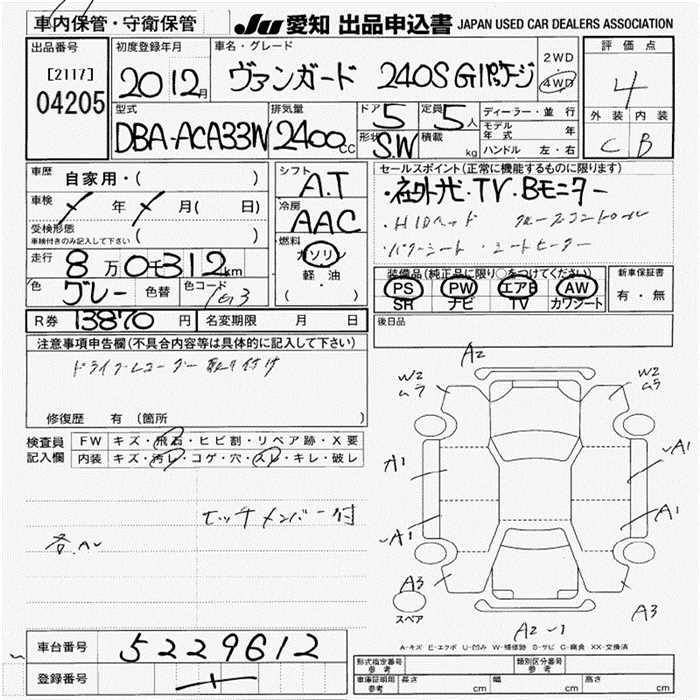 車内保管・守衛保管
JU 愛知 出品申込書 JAPAN USED CAR DEALERS ASSOCIATION
出品番号
[2117]
04205
初度登録年月
20 12月
車名・グレード
ヴァンガード 240S Gパッケージ
2WD
・
4WD
評価点
4
外装 内装
C B
型式
DBA-ACA33W
排気量
2400cc
ドア 5
形状 S.W
定員 5人
積載 kg
ディーラー・並行
モデル年式 年
ハンドル 左・右
車歴 自家用・( )
車検 年 月( 日)
受検形態
車検付きのみ記入して下さい ( )
走行 8万0千312km
色 グレー 色替 色コード 1G3
シフト
A.T
冷房
AAC
燃料
ガソリン
軽・油
( )
セールスポイント(正常に機能するものに限ります)
・社外ナビ・TV・Bモニター
・HIDヘッド クルーズコントロール
・パワーシート ・シートヒーター
装備品(純正品に限り○をつけてください)
PS PW エアB AW
SR ナビ TV カワシート
新車保証書
有・無
R券 13870円 名変期限 月 日
後日品
注意事項申告欄(不具合内容等は具体的に記入して下さい)
ドライブレコーダー取り付け
修復歴 有 (箇所 )
検査員記入欄
FW キズ・飛石・ヒビ割・リペア跡・X要
内装 キズ・汚レ・コゲ・穴・スレ・キレ・破レ
センチメンバー付
各ヘ
A2
W2
ムラ
W2
ムラ
A1
A1
A1
A1
A3
A3
A2
スペア
A-キズ E-エクボ U-凹み W-補修跡 S-サビ C-腐食 XX-交換済
車台番号 5229612
登録番号
形式指定番号 参考
類別区分番号 参考
車庫証明用 参考 長さ cm 幅 cm 高さ cm